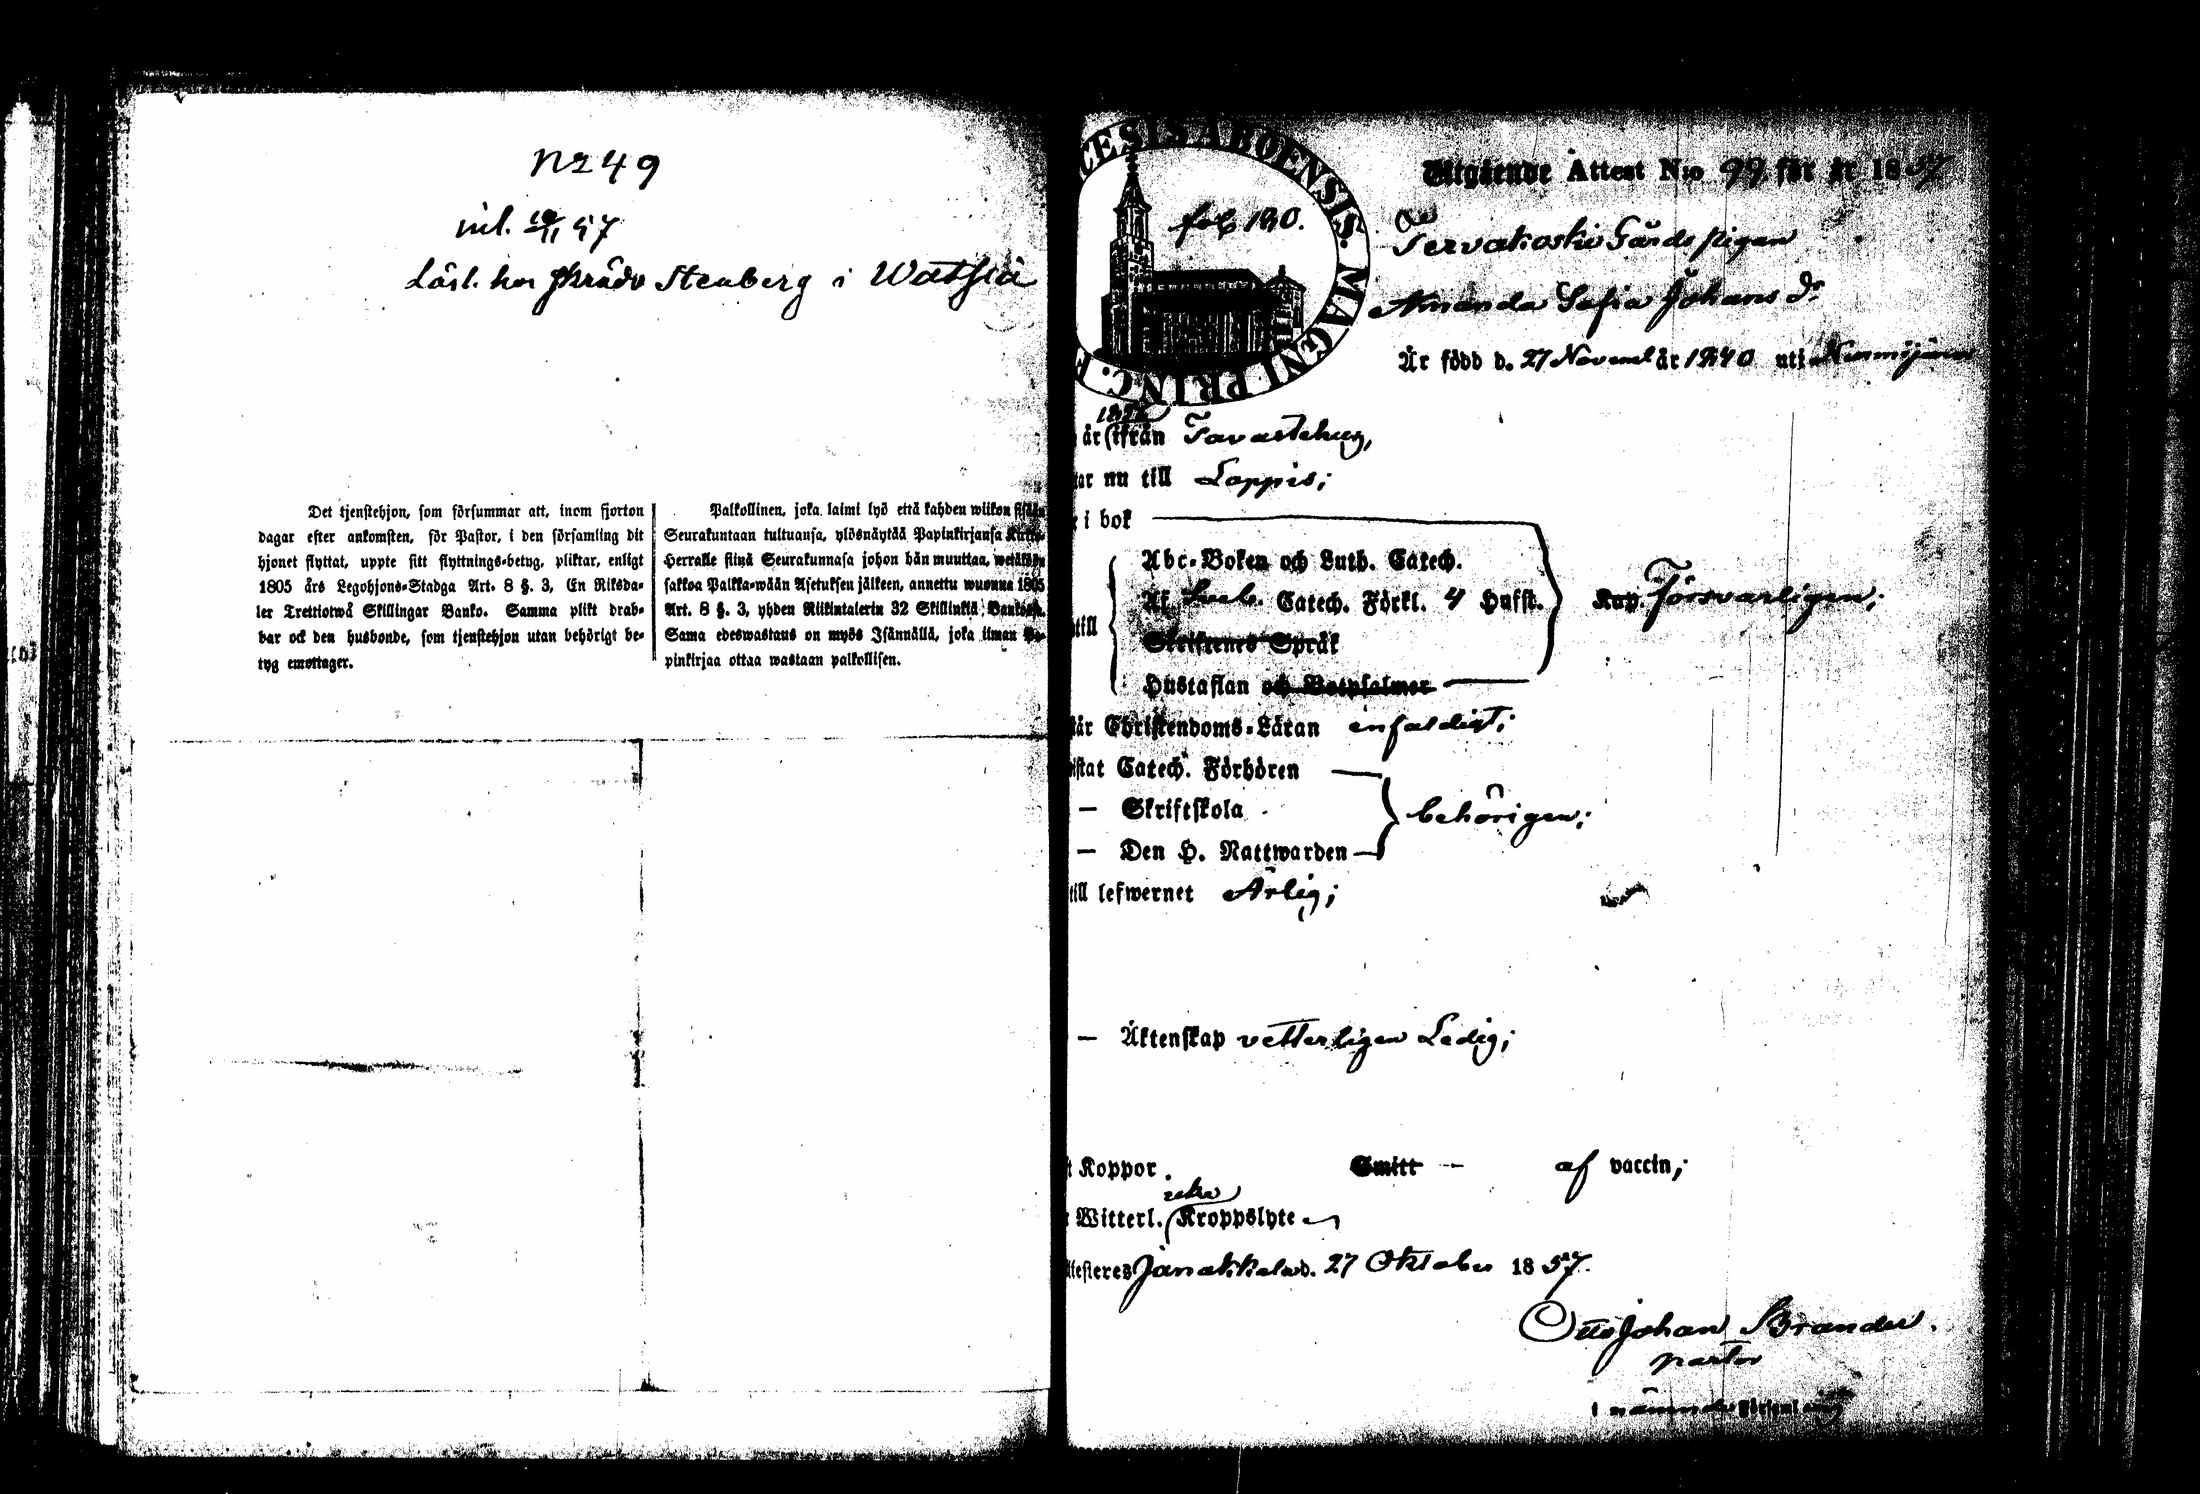 N:o 49
inl. 10/11 57
Läsl. hos Skräddr Stenberg i Watsiä
Det tjenstehjon, som försummar att, inom fjorton
dagar efter ankomsten, för Pastor, i den församling dit
hjonet flyttat, uppte sitt flyttnings-betyg, pliktar, enligt
1805 års Legohjons-Stadga Art. 8 §. 3, En Riksda-
ler Trettiotwå Skillingar Banko. Samma plikt drab-
bar ock den husbonde, som tjenstehjon utan behörigt be-
tyg emottager.
Palkollinen, joka laimi lyö että kahden wiikon sisään
Seurakuntaan tultuansa, ylösnäytää Papinkirjansa Kirkko-
Herralle siinä Seurakunnasa johon hän muuttaa, wetäköön
sakkoa Palkka-wään Asetuksen jälkeen, annettu wuonna 1805
Art. 8 §. 3, yhden Riikintalerin 32 Skillinkiä Bankosa.
Sama edeswastaus on myös Isännällä, joka ilman Pa-
pinkirjaa ottaa wastaan palkollisen.
CESIS ABOENSIS. MAGNI PRINC. F
fol 180.
Utgående Attest N:o 99 för år 1857
Tervakoski Gårds pigan
Amanda Sofia Johans dr
Är född d. 27 Novembr år 1840 uti
år ifrån Tavastehus,
ar nu till Loppis;
i bok
Abc-Boken och Luth. Catech.
Af Sveb. Catech. Förkl. 4 Hufst.
Kap. Försvarligen;
till
Skriftenes Språk
Hustaflan och Botpsalmer
tår Christendoms-Läran enfaldigt;
istat Catech. Förhören
— Skriftskola
behörigen;
— Den H. Nattwarden
till lefwernet Ärlig;
— Äktenskap vetterligen Ledig;
t Koppor. Smitt — af vaccin;
utan
Witterl. Kroppslyte
Attesteres Janakkala d. 27 Oktober 1857.
Otto Johan Brander.
pastor
i nämnde Församling